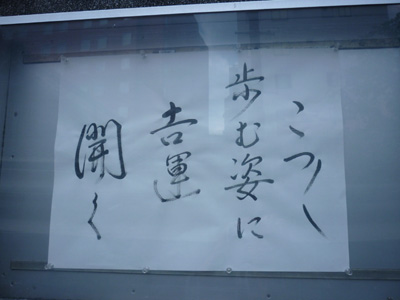 こつ〳〵
歩む姿に
吉運
開く